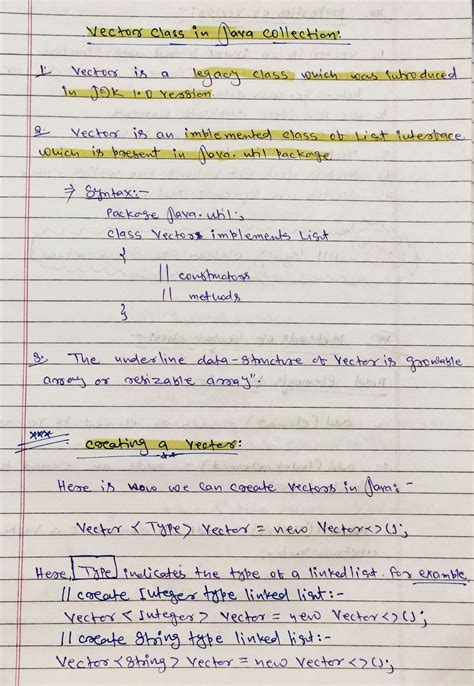 Vector class in Java collection:
1. Vector is a legacy class which was introduced
in JDK 1.0 version
2. Vector is an implemented class of List interface
which is present in Java.util package
⇒ Syntax:-
Package Java.util;
class Vectors implements List
{
// constructors
// methods
}
3. The underline data-structure of vector is growable
array or resizable array".
*** creating a vector:
Here is how we can create vectors in Java:-
Vector <Type> vector = new Vector<>();
Here, Type indicates the type of a linked list. for example
// create Integer type linked list:-
Vector <Integer> vector = new Vector<>();
// create string type linked list:-
Vector <string> vector = new Vector<>();